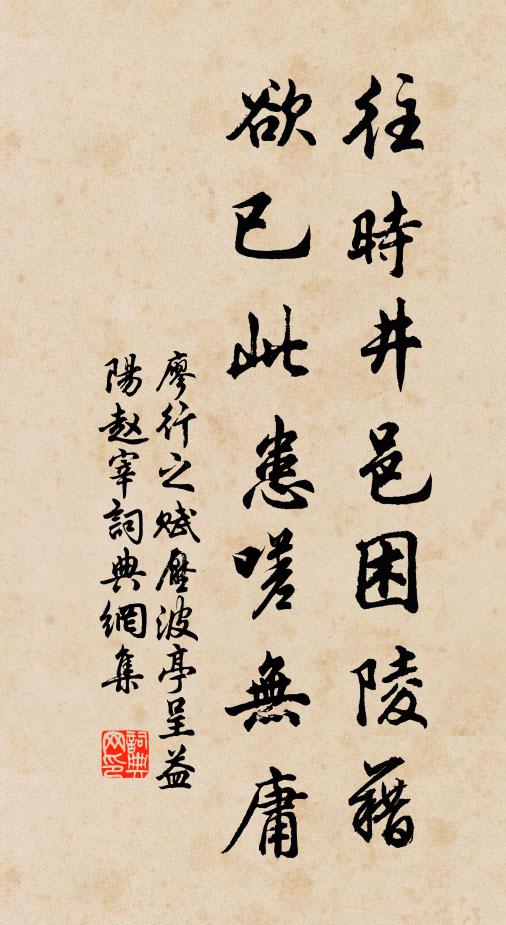 往時井邑困陵藉
欲已此患嗟無庸
廖行之賦壓波亭呈益
陽趙宰詞典網集
詞典网印